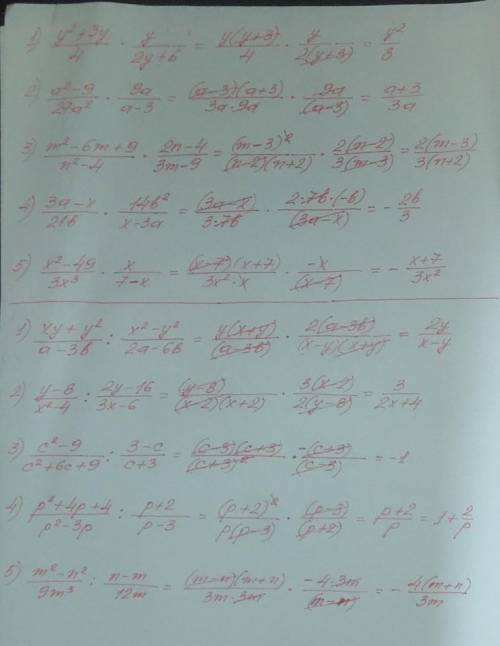 1) (y²+3y)/4 · y/(2y+6) = y(y+3)/4 · y/(2(y+3)) = y²/8
2) (a²-9)/(27a²) · 9a/(a-3) = (a-3)(a+3)/(3a·9a) · 9a/(a-3) = (a+3)/(3a)
3) (m²-6m+9)/(n²-4) · (2n-4)/(3m-9) = (m-3)²/((n-2)(n+2)) · 2(n-2)/(3(m-3)) = 2(m-3)/(3(n+2))
4) (3a-x)/(21b) · 14b²/(x-3a) = (3a-x)/(3·7b) · 2·7b·(-b)/(3a-x) = -2b/3
5) (x²-49)/(3x³) · x/(7-x) = (x-7)(x+7)/(3x²·x) · -x/(x-7) = -(x+7)/(3x²)
1) (xy+y²)/(a-3b) : (x²-y²)/(2a-6b) = y(x+y)/(a-3b) · 2(a-3b)/((x-y)(x+y)) = 2y/(x-y)
2) (y-8)/(x²-4) : (2y-16)/(3x-6) = (y-8)/((x-2)(x+2)) · 3(x-2)/(2(y-8)) = 3/(2x+4)
3) (c²-9)/(c²+6c+9) : (3-c)/(c+3) = (c-3)(c+3)/(c+3)² · -(c+3)/(c-3) = -1
4) (p²+4p+4)/(p²-3p) : (p+2)/(p-3) = (p+2)²/(p(p-3)) · (p-3)/(p+2) = (p+2)/p = 1+2/p
5) (m²-n²)/(9m³) : (n-m)/(12m) = (m-n)(m+n)/(3m·3m) · -4·3m/(m-n) = -4(m+n)/(3m)